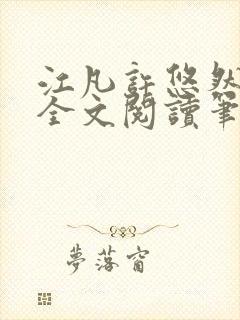 江凡許悠然
全文閱讀筆
夢落窗